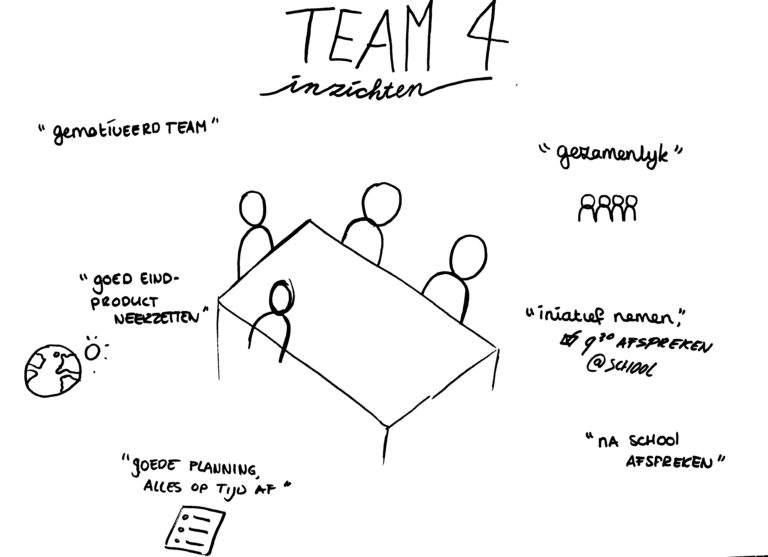 TEAM 4
inzichten
"gemotiveerd TEAM"
"gezamenlijk"
"goed eind-
product
neerzetten"
"iniatief nemen,"
9³⁰ AFSPREKEN
@SCHOOL
"na school
afspreken"
"goede planning,
alles op tijd af"